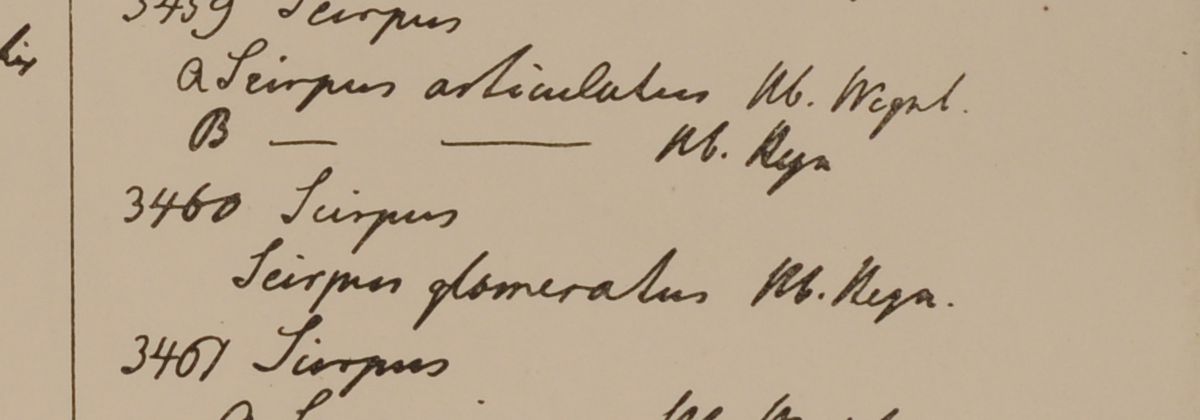 3459 Scirpus
a Scirpus articulatus Hb.
B — — Hb.
3460 Scirpus
Scirpus glomeratus Hb.
3461 Scirpus
a